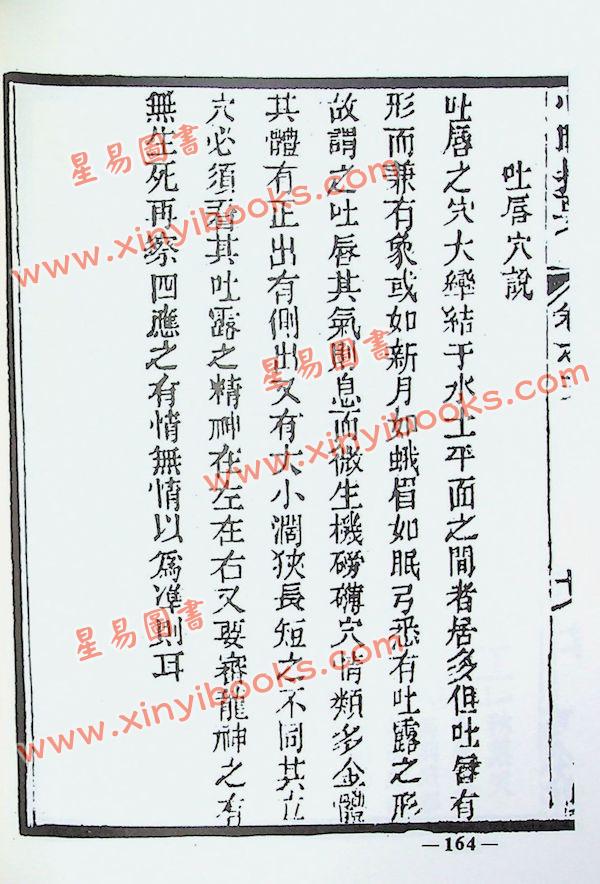 吐唇穴說
吐唇之穴大巒結于水土平面之間者居多但吐唇有
形而兼有象或如新月如蛾眉如眠弓悉有吐露之形
故謂之吐唇其氣則息而微生機磅礴穴情類多金體
其體有正出有側出又有大小濶狹長短之不同其立
穴必須看其吐露之精神在左在右又要審龍神之有
無生死再察四應之有情無情以為準則耳
—164—
星易圖書
www.xinyibooks.com
星易圖書
www.xinyibooks.com
星易圖書
www.xinyibooks.com